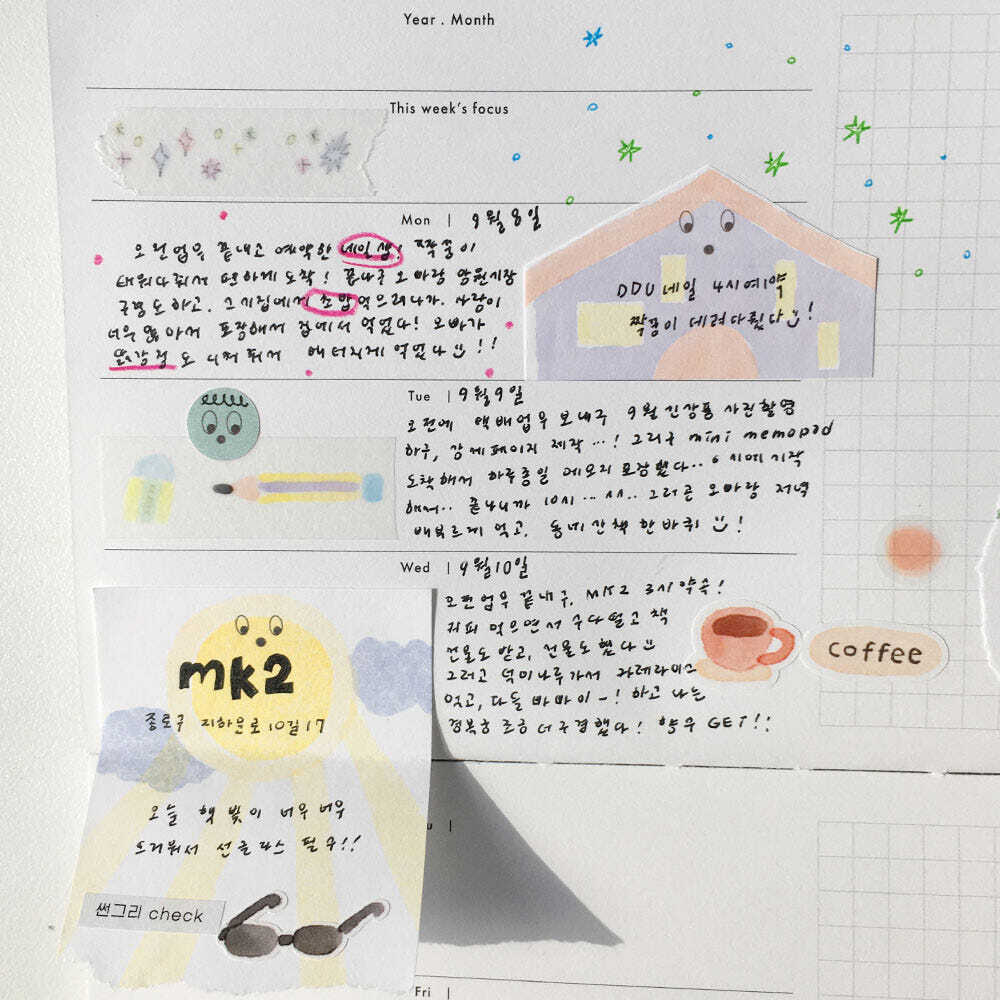 Year . Month
This week's focus
Mon | 9월 8일
오전업무 끝내고 예약한 네일샵! 짝꿍이
태워다줘서 편하게 도착! 끝나구 오빠랑 망원시장
구경도 하고, 그 시집에서 초밥먹으려다가. 사람이
너무 많아서 포장해서 집에서 먹었다! 오빠가
도 시켜줘서 맛있게 먹었다!!
DDU네일 4시예약
짝꿍이 데려다줬다!
Tue | 9월 9일
오전에 택배업무 보내구 9월 신상품 사진촬영
하구, 상세페이지 제작...! 그리구 mini memopad
도착해서 하루종일 메모지 포장했다.. 6시에 시작
해서.. 끝나니까 10시... ㅆㅆ.. 그러곤 오빠랑 저녁
배부르게 먹고, 동네산책 한바퀴!
Wed | 9월 10일
오전업무 끝내구, MK2 3시약속!
커피 먹으면서 수다떨고 책
선물도 받고, 선물도 했다
그러고 덕미나루가서 카레라이스
먹고, 다들 바바이~! 하고 나는
경복궁 조금 더 구경했다! 향수 GET!!
coffee
mk2
종로구 자하문로10길 17
오늘 햇빛이 너무너무
뜨거워서 선글라스 필수!!
썬그리 check
u |
Fri |